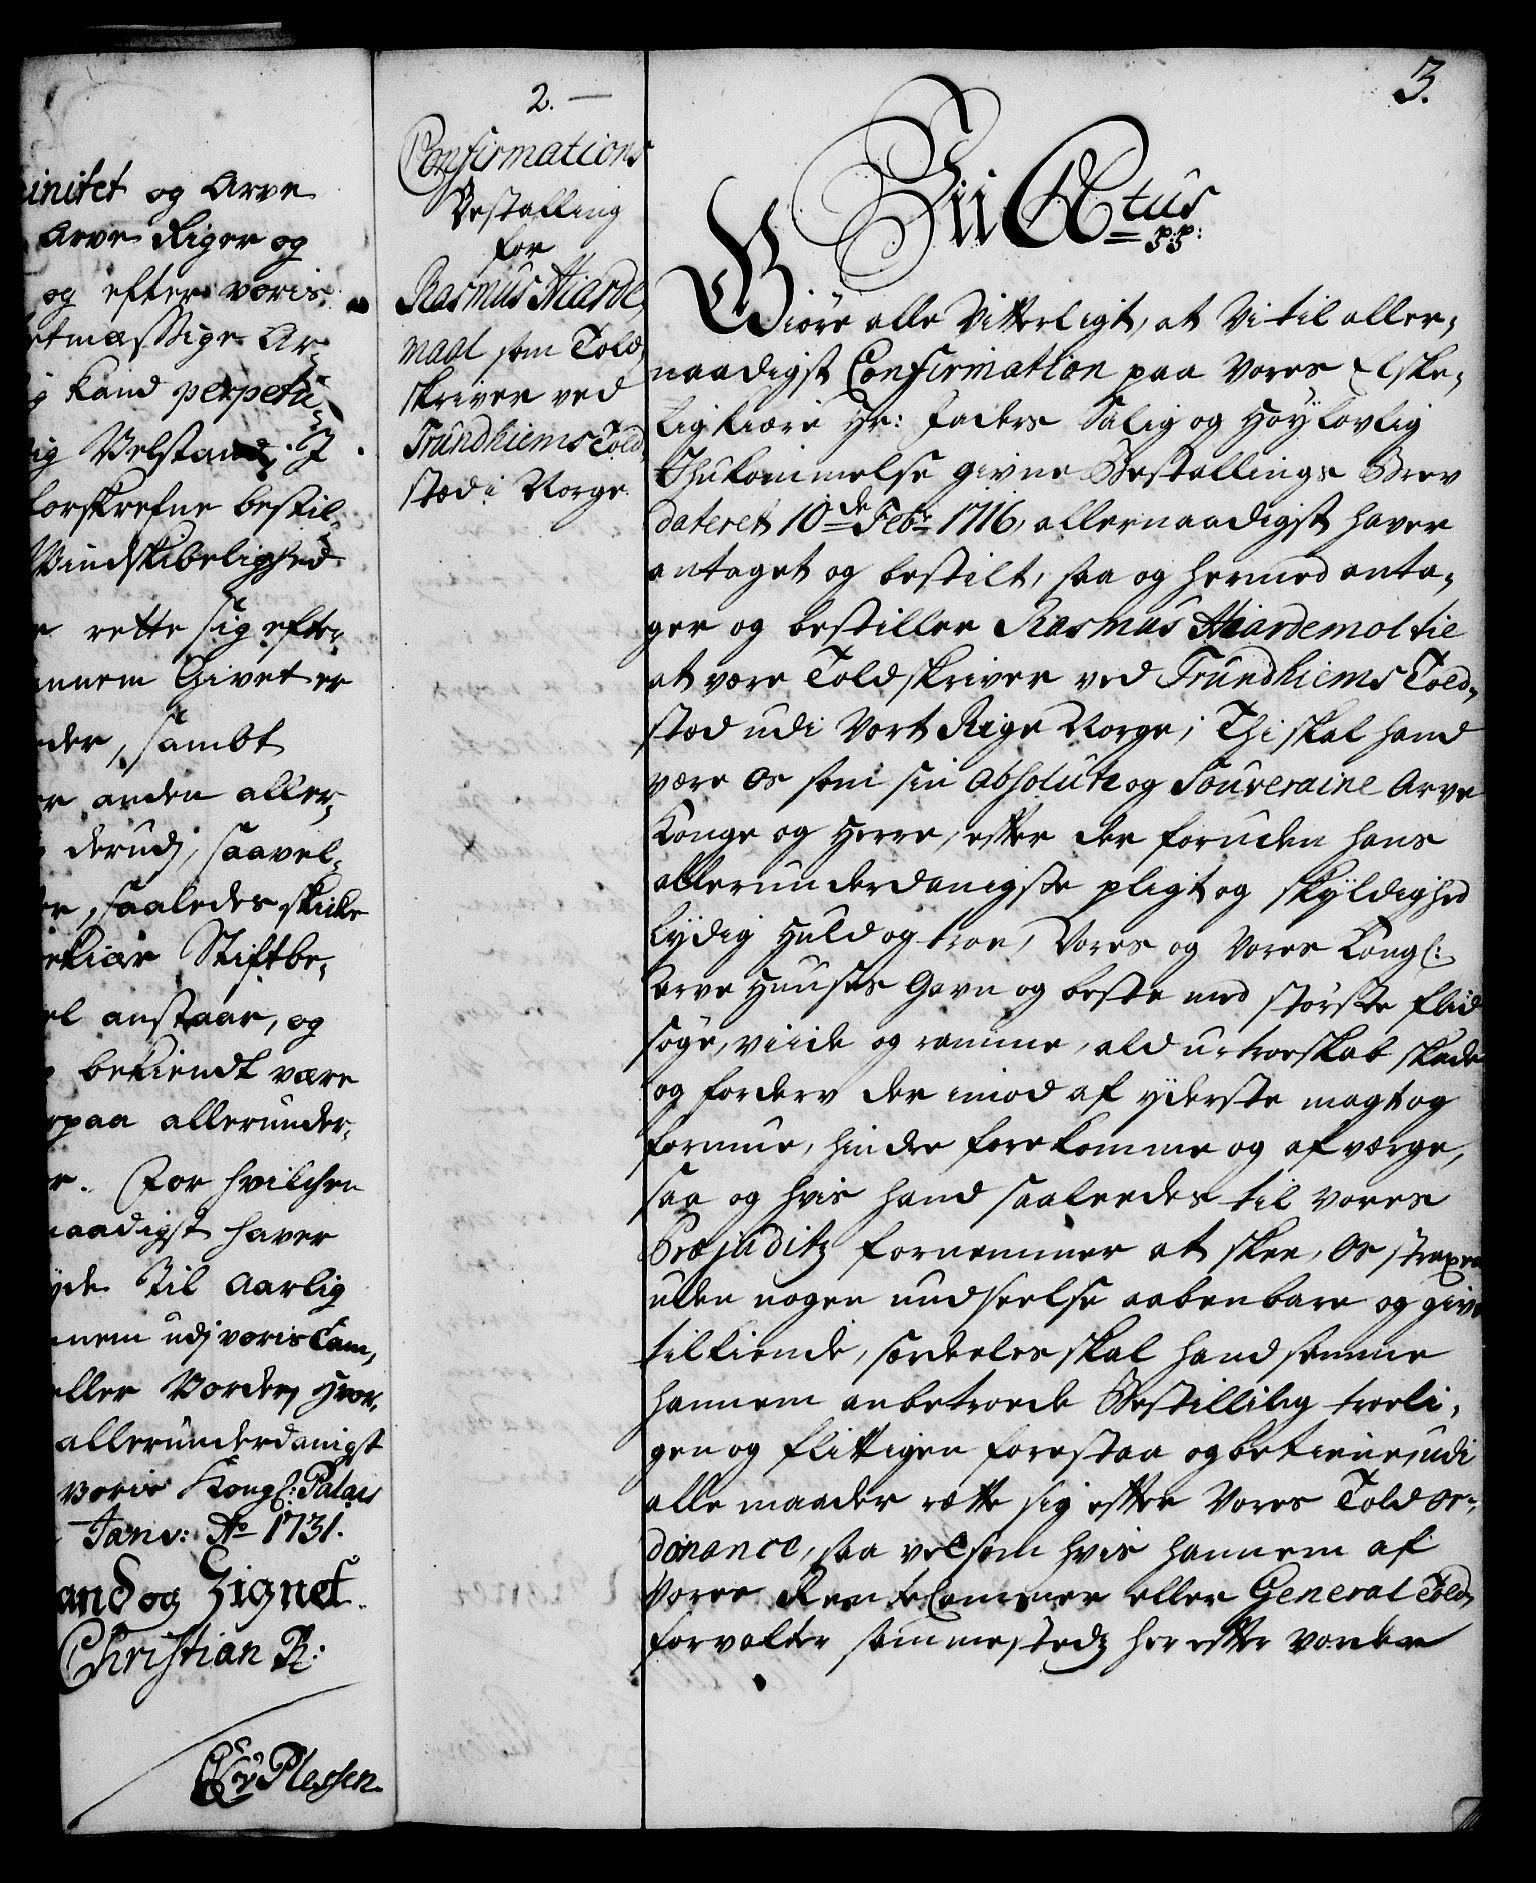 initet og Arve
Arve Riger og
og efter voris
etmæssige Ar-
kand perpetu-
ig Velstand. I
forskrefne bestil-
Windskibelighed
rette sig efter
annem Givet er
der, sambt
er anden aller-
derudj, saavel-
er, saaledes skicke
ekiær Stiftbe-
el anstaar, og
bekiendt være
rpaa allerunder-
r. For hvilchen
naadigst haver
yde til Aarlig
nem udj voris Cam-
eller Vorder, Hvor-
allerunderdanigst
Voris Kongl: Palais
Janv: Ao 1731.
and og Zignet.
Christian R:
CAv Plessen
2.
Confirmations
Bestalling
for
Rasmus Hiarde-
maal som Told-
skriver ved
Trundhiems Told-
stæd i Norge
3.
Vii C 6tus
p:p:
Giöre alle Vitterligt, at Vi til aller-
naadigst Confirmation paa Vores Elske-
lig kiære Hr: Faders Salig og Höylovlig
Ihukommelse givne Bestallings Brev
dateret 10de Febr: 1716, allernaadigst haver
antaget og bestilt, saa og hermed anta-
ger og bestiller Rasmus Hiardemol til
at være Toldskriver ved Trundhiems Told-
stæd udi Vort Rige Norge; Thi skal hand
være os som sin Absolute og Souveraine Arve
Konge og Herre, efter der foruden hans
allerunderdanigste pligt og skyldighed
lydig Huld og troe, Vores og Vores Kongl:
Arve Huuses Gavn og beste med störste flid
söge, viide og ramme, ald utroeskab skade
og forderv der imod af yderste magt og
formue, hindre forekomme og afværge,
saa og hvis hand saaleedes til Vores
Præjuditz fornemmer at skee, os strax
uden nogen undseelse aabenbare og give
tilkiende, særdeeles skal hand samme
hannem anbetroede Bestilling troeli-
gen og flittigen forestaa og betiene, udi
alle maader rætte sig efter Vores Told Or-
dinance, saa vel som hvis hannem af
Vores Rente Cammer eller General Told-
forvalter sammestedz her efter vorder